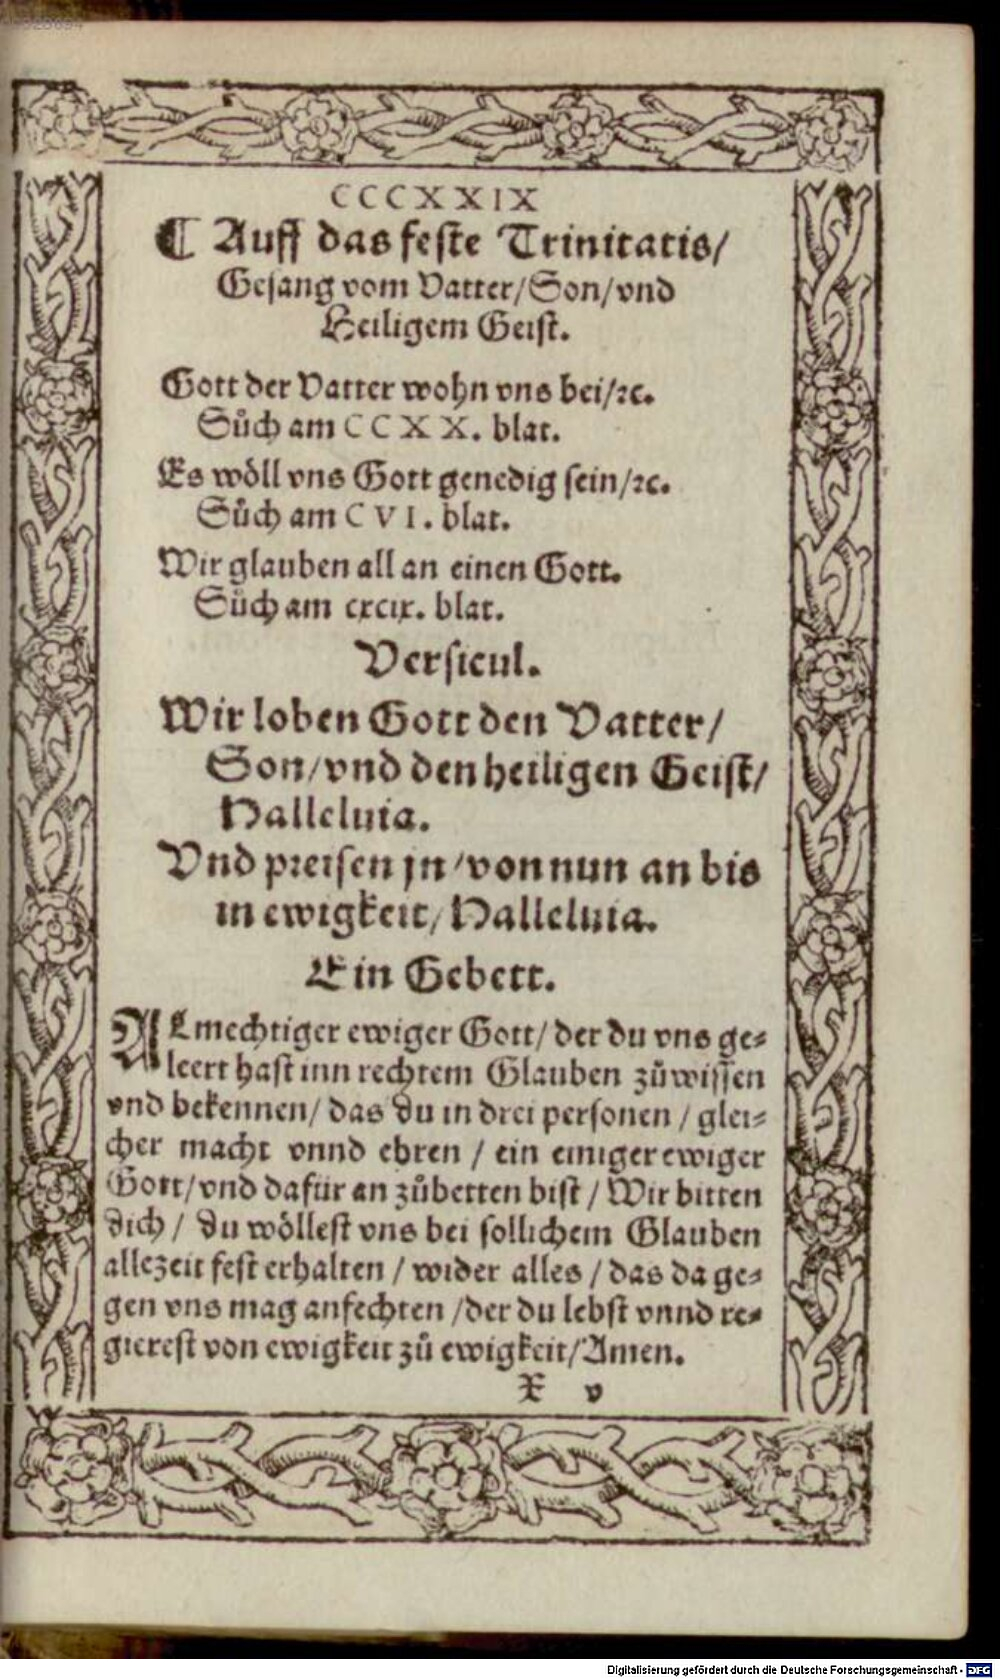 CCCXXIX
¶ Auff das feste Trinitatis/
Gesang vom Vatter/Son/vnd
Heiligem Geist.
Gott der Vatter wohn vns bei/ꝛc.
Sůch am CCXX. blat.
Es wöll vns Gott genedig sein/ꝛc.
Sůch am CVI. blat.
Wir glauben all an einen Gott.
Sůch am cxcix. blat.
Versicul.
Wir loben Gott den Vatter/
Son/vnd den heiligen Geist/
Halleluia.
Vnd preisen jn/von nun an bis
in ewigkeit/Halleluia.
Ein Gebett.
ALmechtiger ewiger Gott/ der du vns ge-
leert hast inn rechtem Glauben zůwissen
vnd bekennen/ das du in drei personen / glei-
cher macht vnnd ehren / ein einiger ewiger
Gott/vnd dafür an zůbetten bist / Wir bitten
dich / du wöllest vns bei sollichem Glauben
allezeit fest erhalten / wider alles / das da ge-
gen vns mag anfechten /der du lebst vnnd re-
gierest von ewigkeit zů ewigkeit/Amen.
X v
Digitalisierung gefördert durch die Deutsche Forschungsgemeinschaft - DFG